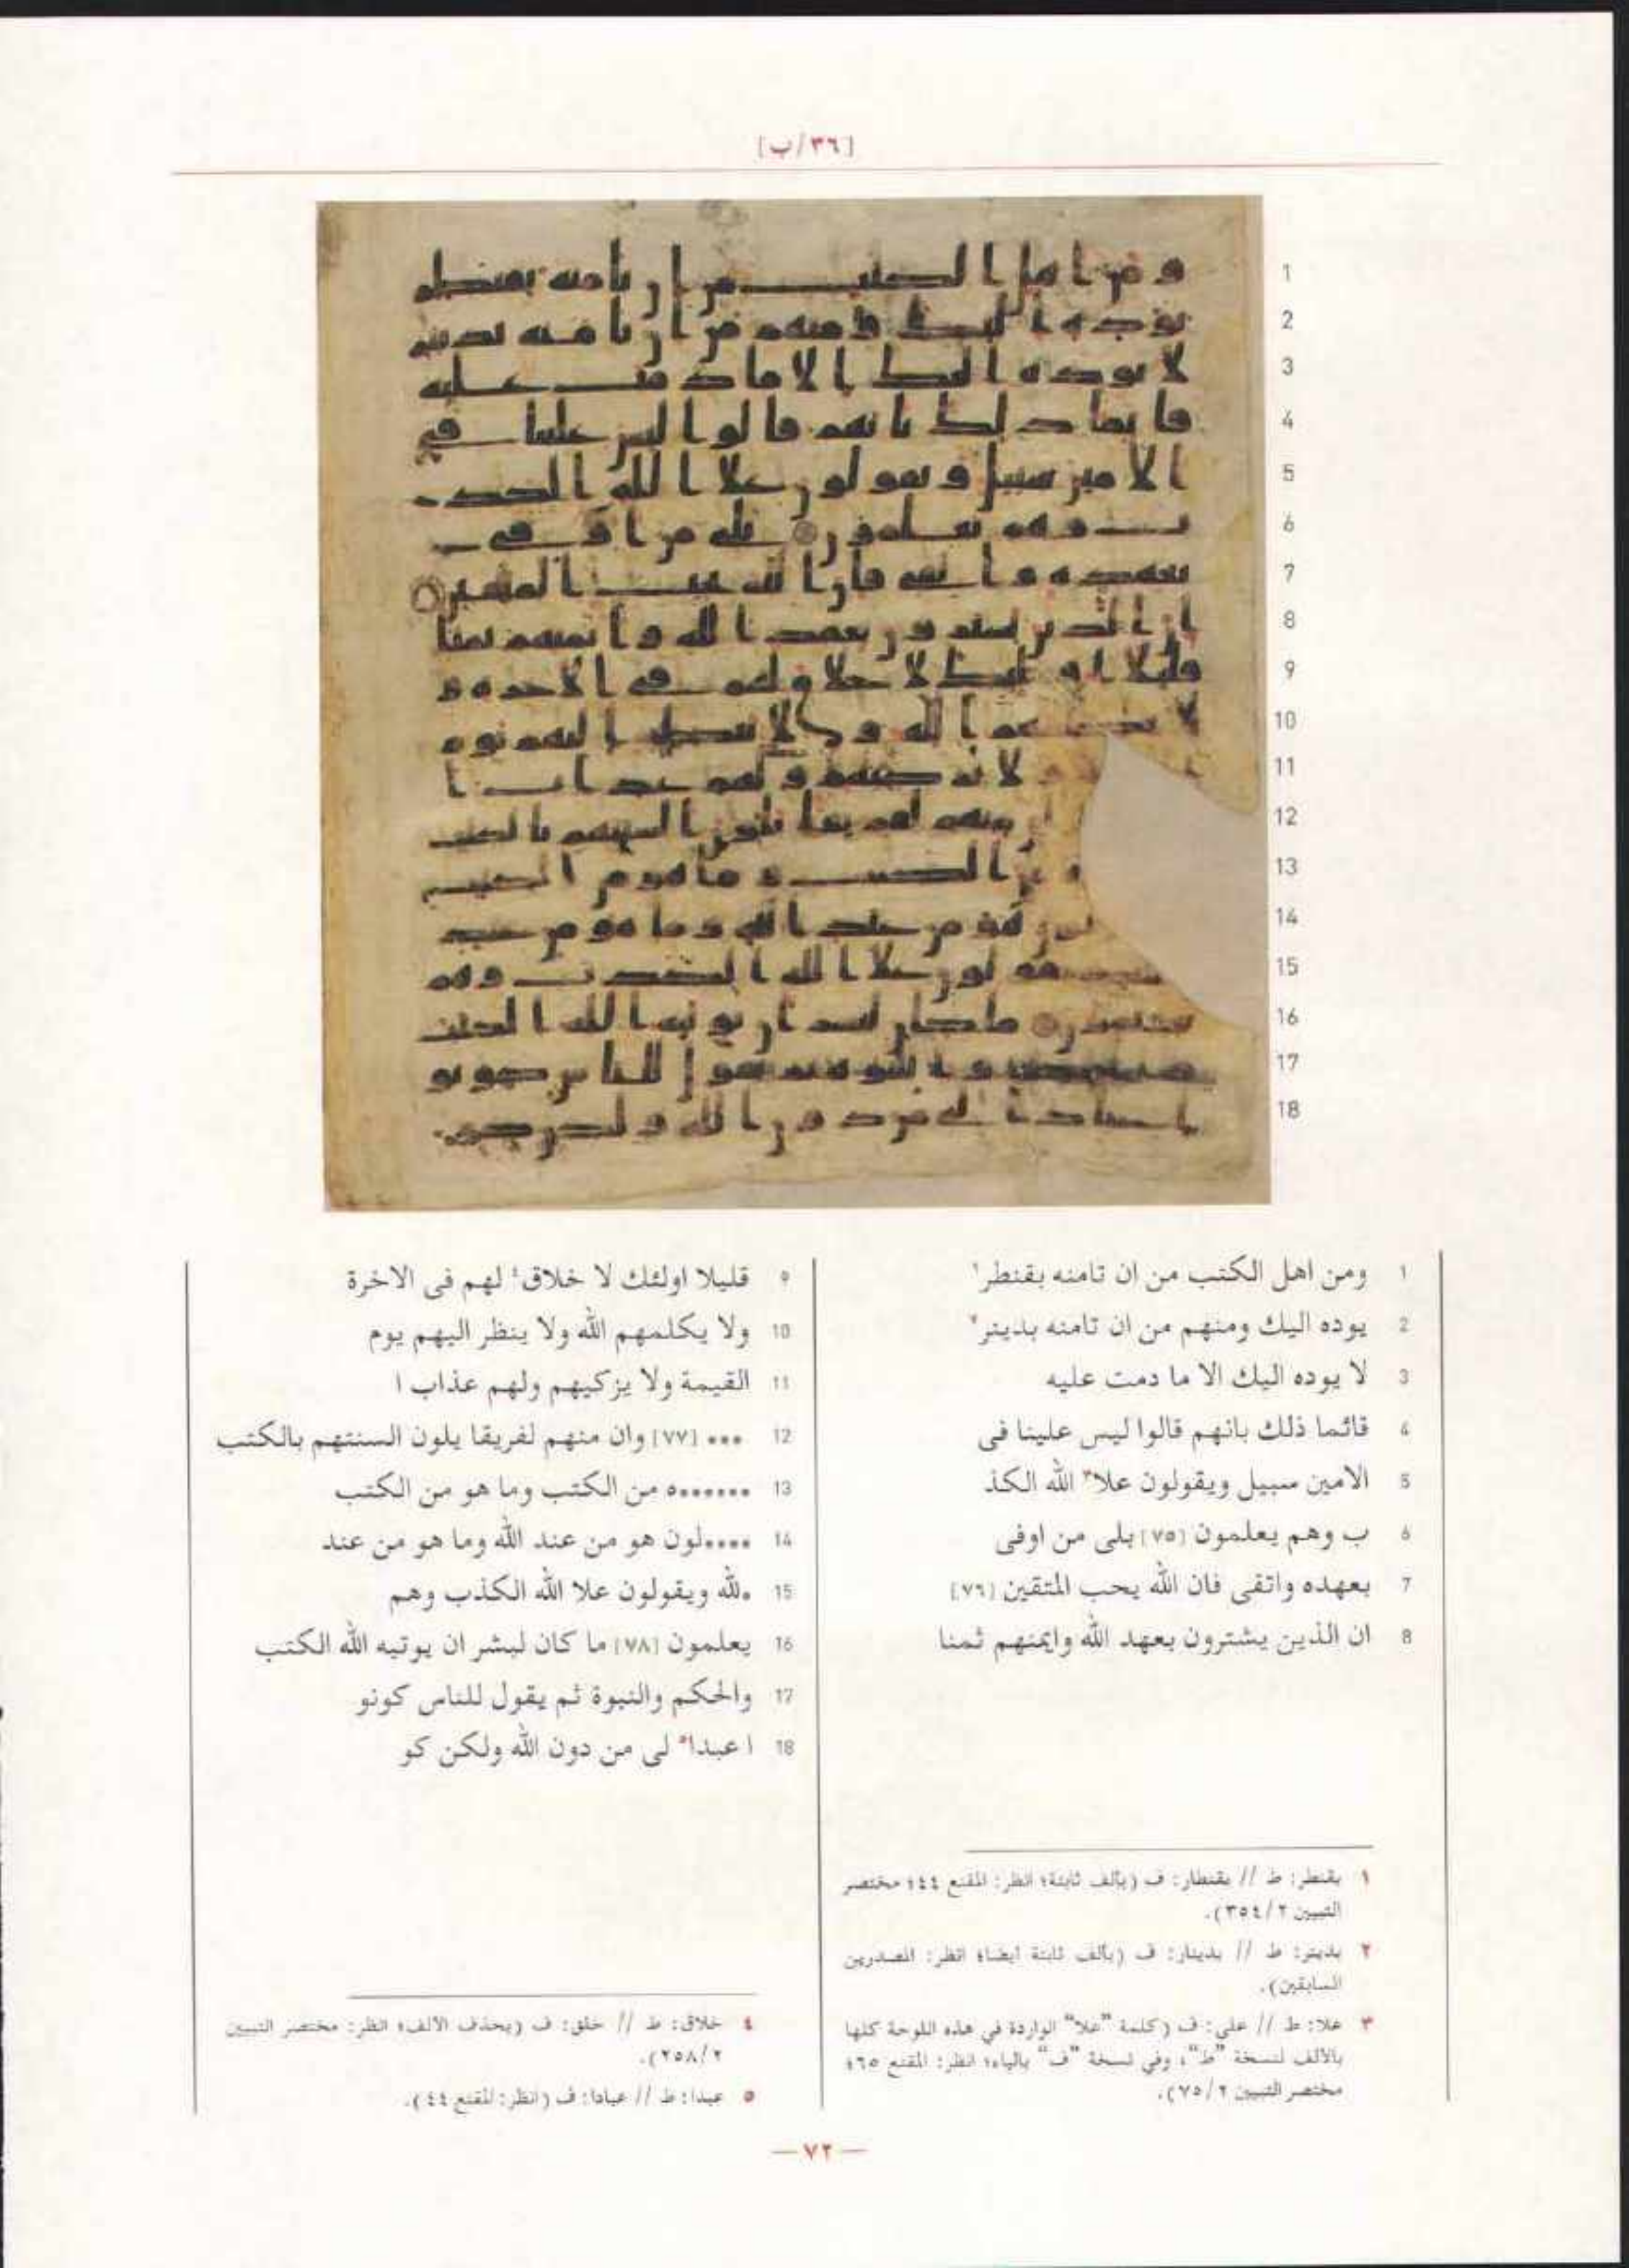 [٣٦/ب]
1
2
3
4
5
6
7
8
9
10
11
12
13
14
15
16
17
18
1 ومن اهل الكتب من ان تامنه بقنطر١
2 يوده اليك ومنهم من ان تامنه بدينر٢
3 لا يوده اليك الا ما دمت عليه
4 قائما ذلك بانهم قالوا ليس علينا فى
5 الامين سبيل ويقولون علا٣ الله الكذ
6 ب وهم يعلمون [٧٥] بلى من اوفى
7 بعهده واتقى فان الله يحب المتقين [٧٦]
8 ان الذين يشترون بعهد الله وايمنهم ثمنا
9 قليلا اولئك لا خلاق٤ لهم فى الاخرة
10 ولا يكلمهم الله ولا ينظر اليهم يوم
11 القيمة ولا يزكيهم ولهم عذاب ا
12 ••• [٧٧] وان منهم لفريقا يلون السنتهم بالكتب
13 •••••••ه من الكتب وما هو من الكتب
14 ••••لون هو من عند الله وما هو من عند
15 •لله ويقولون علا الله الكذب وهم
16 يعلمون [٧٨] ما كان لبشر ان يوتيه الله الكتب
17 والحكم والنبوة ثم يقول للناس كونو
18 ا عبدا٥ لى من دون الله ولكن كو
١ بقنطر: ط // بقنطار: ف (بألف ثابتة؛ انظر: المقنع ٤٤؛ مختصر
التبيين ٢/ ٣٥٤).
٢ بدينر: ط // بدينار: ف (بألف ثابتة أيضا؛ انظر: المصدرين
السابقين).
٣ علا: ط // على: ف (كلمة "علا" الواردة في هذه اللوحة كلها
بالألف لنسخة "ط"، وفي نسخة "ف" بالياء؛ انظر: المقنع ٦٥؛
مختصر التبيين ٢/ ٧٥).
٤ خلاق: ط // خلق: ف (بحذف الألف؛ انظر: مختصر التبيين
٢/ ٢٥٨).
٥ عبدا: ط // عبادا: ف (انظر: المقنع ٤٤).
— ٧٢ —